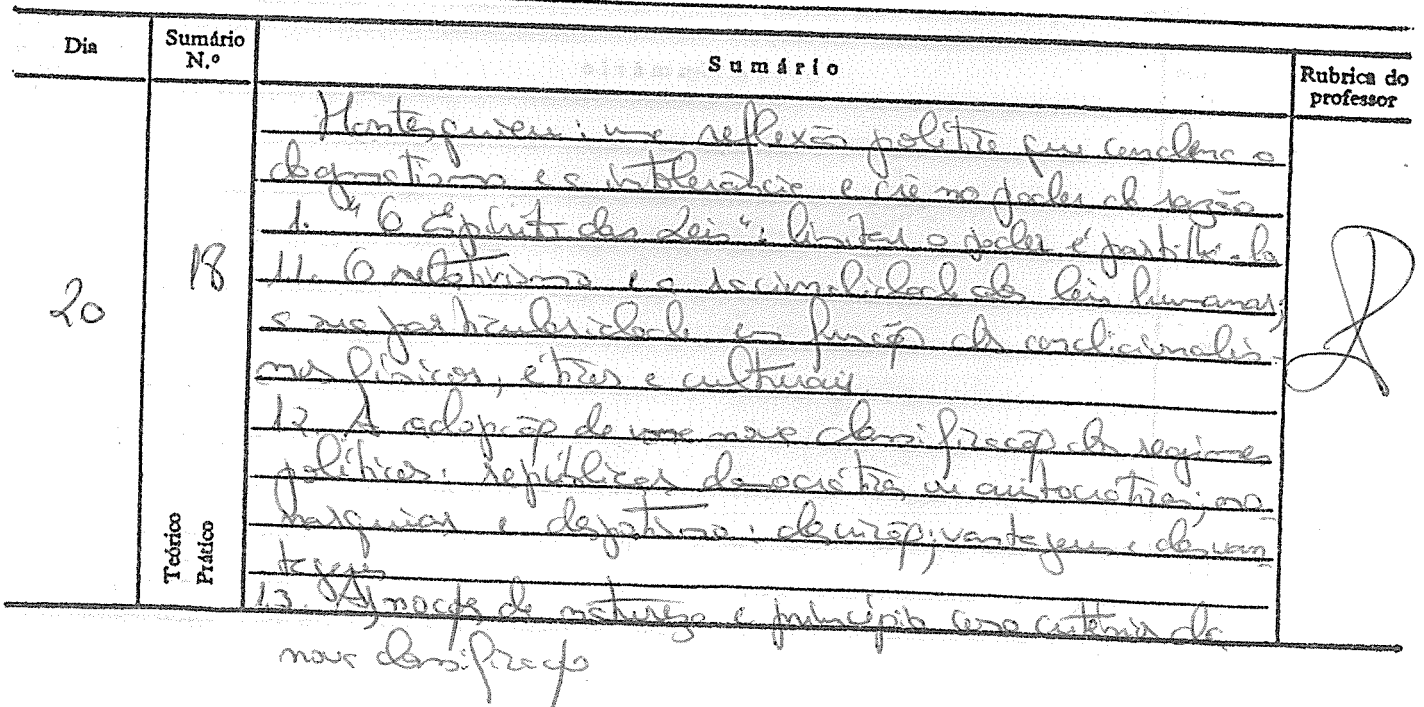 Dia
Sumário N.º
Sumário
Rubrica do professor
20
18
Teórico
Prático
Montesquieu: uma reflexão política que condena o
dogmatismo e a intolerância e crê no poder da razão
1. "O Espírito das Leis": limitar o poder é partilhá-lo
11. O relativismo e a racionalidade das leis humanas;
a sua particularidade em função de condicionalis-
mos físicos, e culturais
12. A adopção de uma nova classificação de regimes
políticos: repúblicas democrática ou aristocrática; mo
narquias e despotismo: ; vantagens e desvan
tagens
13. As noções de natureza e princípio como critérios da
nova classificação